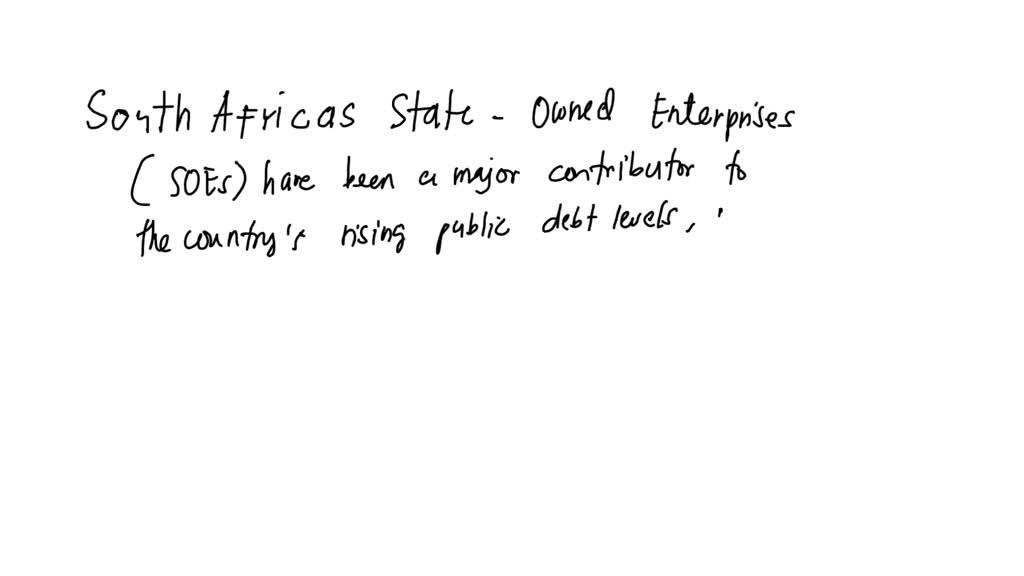 South Africas State - Owned Enterprises
(SOEs) have been a major contributor to
the country's rising public debt levels,